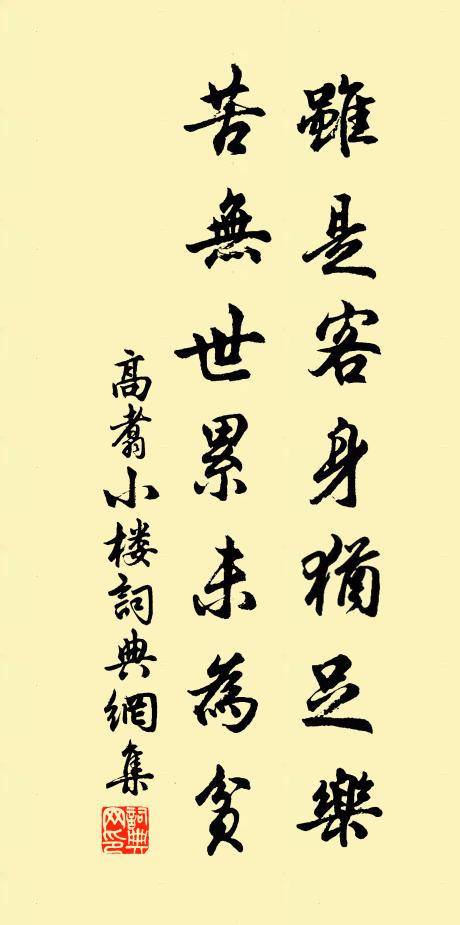 雖是客身猶足樂
苦無世累未為貧
高翥小楼詞典網集
詞典网印